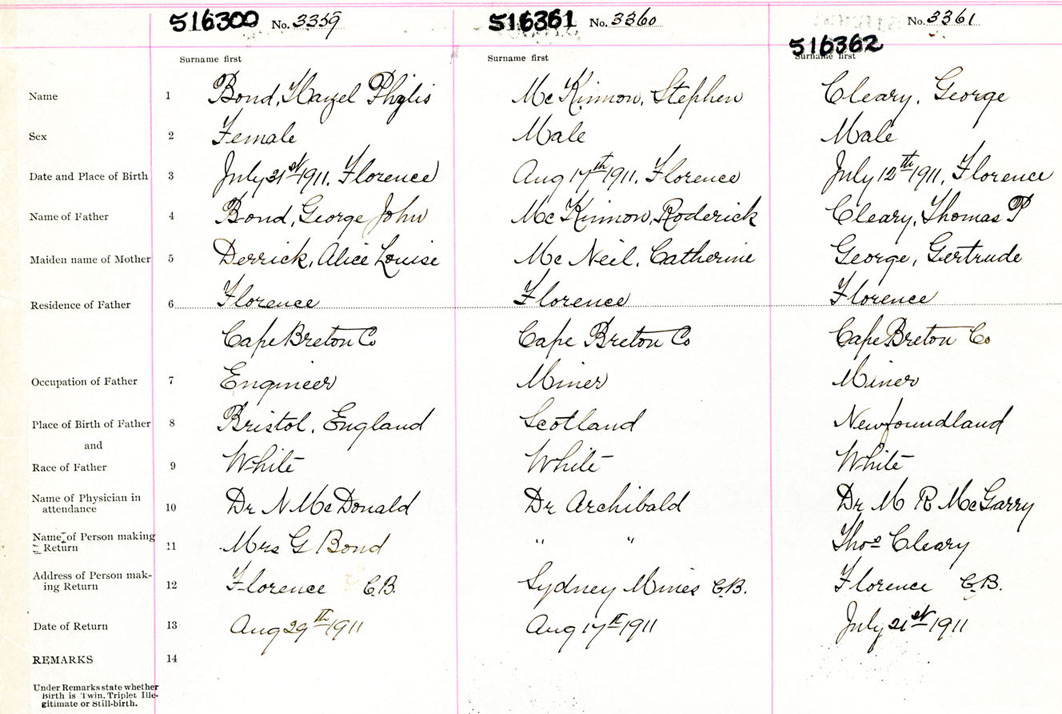 516300 No. 3359 516361 No. 3360 516362 No. 3361
Surname first Surname first Surname first
Name 1 Bond, Hazel Phylis Mc Kinnon, Stephen Cleary, George
Sex 2 Female Male Male
Date and Place of Birth 3 July 21st 1911, Florence Aug 17th 1911, Florence July 12th 1911, Florence
Name of Father 4 Bond, George John Mc Kinnon, Roderick Cleary, Thomas P
Maiden name of Mother 5 Derrick, Alice Louise Mc Neil, Catherine George, Gertrude
Residence of Father 6 Florence Florence Florence
Cape Breton Co Cape Breton Co Cape Breton Co
Occupation of Father 7 Engineer Miner Miner
Place of Birth of Father 8 Bristol, England Scotland Newfoundland
and
Race of Father 9 White White White
Name of Physician in
attendance 10 Dr N McDonald Dr Archibald Dr M R McGarry
Name of Person making
Return 11 Mrs G Bond " " Thos Cleary
Address of Person mak-
ing Return 12 Florence C.B. Sydney Mines C.B. Florence C.B.
Date of Return 13 Aug 29th 1911 Aug 17th 1911 July 21st 1911
REMARKS 14
Under Remarks state whether
Birth is Twin, Triplet Ille-
gitimate or Still-birth.